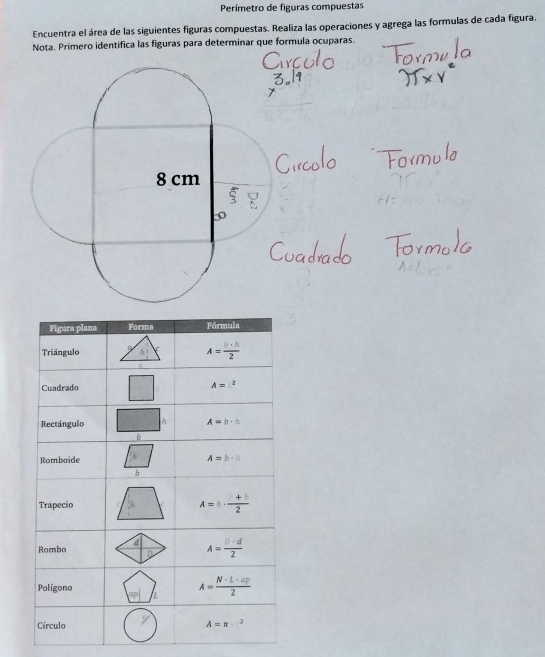 Perímetro de figuras compuestas
Encuentra el área de las siguientes figuras compuestas. Realiza las operaciones y agrega las formulas de cada figura.
Nota. Primero identifica las figuras para determinar que formula ocuparas.
Circulo Formula
3.14 π x r²
x
8 cm
4cm
Circulo Formula
Cuadrado Formula
Figura plana Forma Fórmula
Triángulo h A = b · h / 2
Cuadrado A = ²
Rectángulo h b A = b · h
Romboide b A = b · h
Trapecio A = h · + b / 2
Rombo d D A = D · d / 2
Polígono ap L A = N · L · ap / 2
Círculo A = π ²